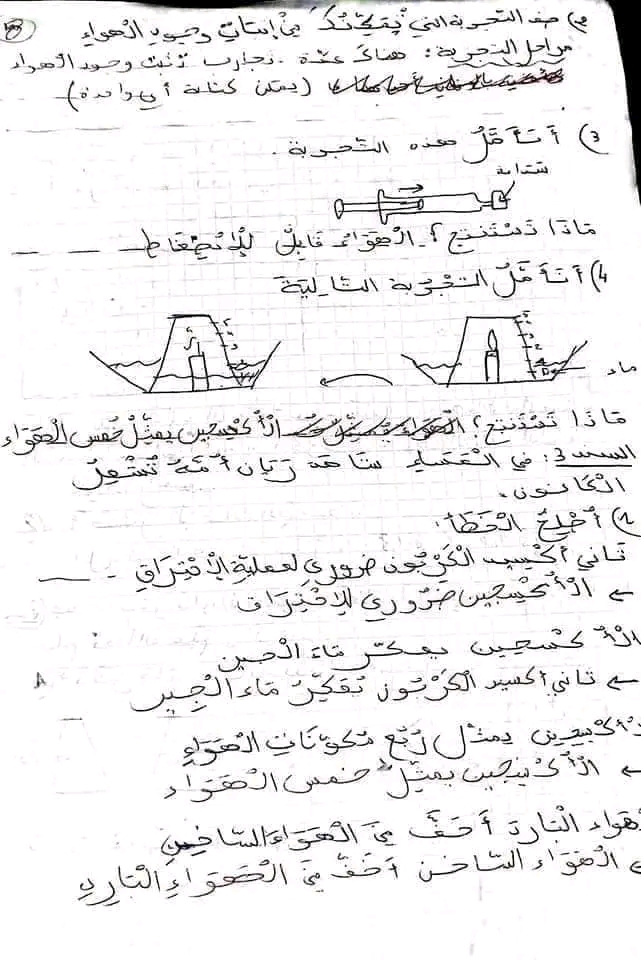 م) صف التجربة التي تفيدك في إثبات وجود الهواء
مراحل التجربة: هناك عدة تجارب تثبت وجود الهواء
(يمكن كتابة أي واحدة)
3) أَتَأَمَّلُ هذه التّجربة.
سدادة
مَاذَا نَسْتَنْتِجُ؟ الْهَوَاءُ قَابِلٌ لِلْاِنْضِغَاطِ
4) أَتَأَمَّلُ التَّجْرُبَةَ التَّالِيَةَ
ماء
مَاذَا نَسْتَنْتِجُ؟ الْأُكْسِجين يمثّل خُمس الهَوَاء
السند 3: في الْمَسَاءِ شاهد رَيَان أُمَّهُ تُشْعِلُ
الْكَانُون.
1) أُصْلِحُ الْخَطَأَ:
ثَاني أكْسيد الْكَرْبُون ضروري لعمليّة الاِحْتِرَاقِ
← الْأُكْسِجين ضَرُوري لِلاِحْتِرَاق
الْأُكْسجين يعكّر مَاءَ الْجير
← ثاني أكسيد الْكَرْبُون يُعَكِّرُ مَاءَ الْجِير
الْأُكْسِجين يمثل رُبْع مُكَوِّنَاتِ الْهَوَاءِ
← الْأُكْسِجين يمثّل خمس الْهَوَاء
الهَوَاء الْبَارد أَخَفُّ مِنَ الْهَوَاءِ السَّاخِنِ
← الْهَوَاء السَّاخن أَخَفّ مِنَ الْهَوَاءِ الْبَارِدِ